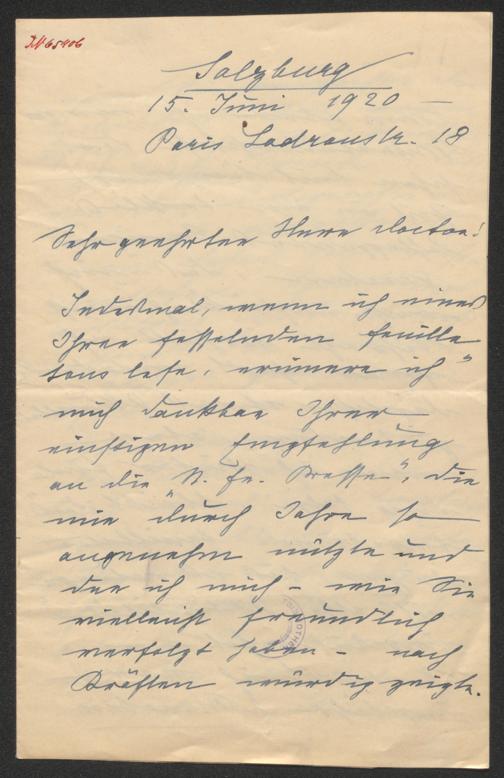 I.N 65406
Salzburg
15. Juni 1920 —
Paris Lodronstr. 18
Sehr geehrter Herr Doctor!
Jedesmal, wenn ich eines
Ihrer fesselnden Feuille
tons lese, erinnere ich
mich dankbar Ihrer
einstigen Empfehlung
an die „N. Fr. Presse", die
mir durch Jahre so
angenehm nützte und
der ich mich – wie Sie
vielleicht freundlich
verfolgt haben – nach
Kräften würdig zeigte.